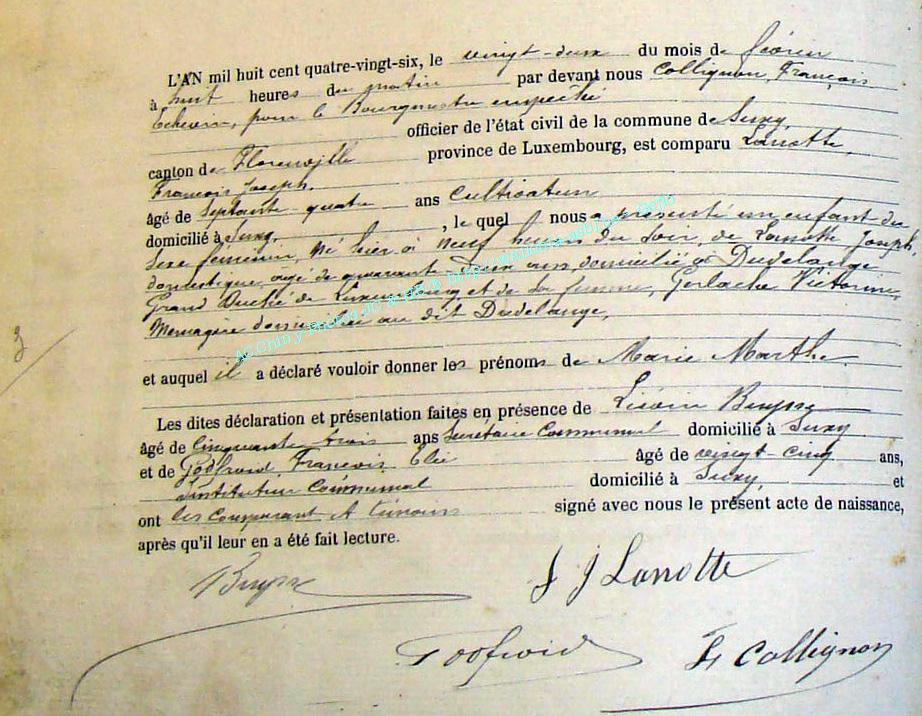 L'AN mil huit cent quatre-vingt-six, le vingt-deux du mois de février
à huit heures du matin par devant nous Collignon, François
Echevin, pour le Bourgmestre empêché
officier de l'état civil de la commune de Suxy,
canton de Florenville province de Luxembourg, est comparu Lanotte,
François Joseph,
âgé de Septante quatre ans Cultivateur
domicilié à Suxy, , le quel nous a présenté un enfant du
Sexe féminin, né hier à neuf heures du soir, de Lanotte Joseph,
domestique, agé de quarante-deux ans, domicilié à Dudelange
Grand Duché de Luxembourg et de sa femme, Gerlache Victorine,
Menagère domiciliée au dit Dudelange,
3
et auquel il a déclaré vouloir donner les prénoms de Marie Marthe
Les dites déclaration et présentation faites en présence de
âgé de Cinquante trois ans Secrétaire Communal domicilié à Suxy
et de Godfroid François Elie âgé de vingt-cinq ans,
Instituteur Communal domicilié à Suxy, et
ont les Comparant et témoins signé avec nous le présent acte de naissance,
après qu'il leur en a été fait lecture.
F J Lanotte
Godfroid F Collignon